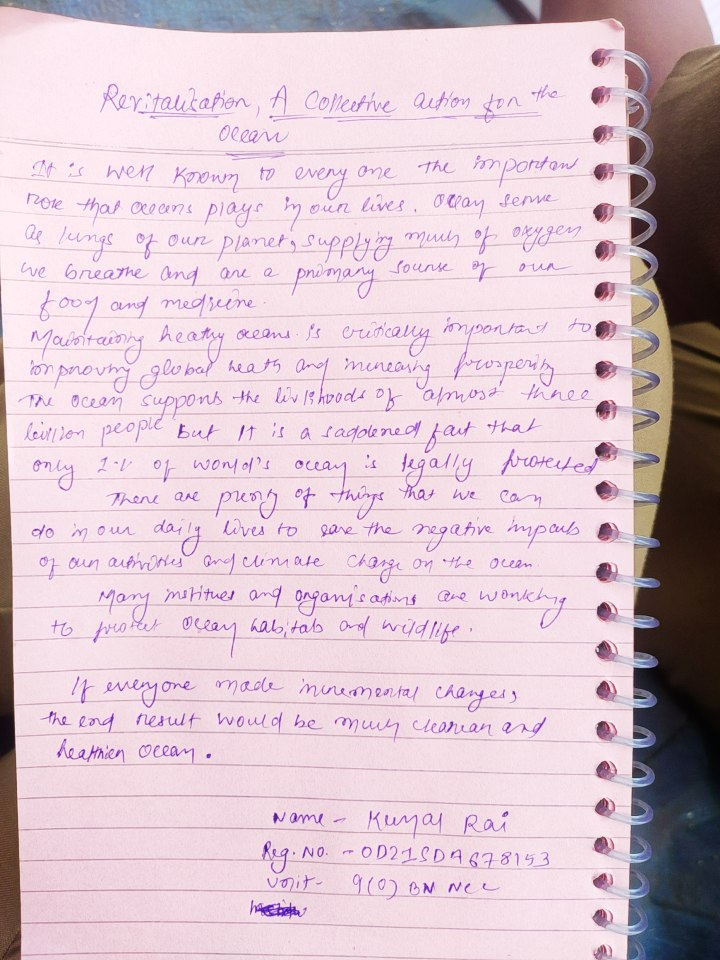 Revitalization, A Collective action for the
Ocean
It is well known to every one the important
role that oceans plays in our lives. Ocean serve
as lungs of our planet, supplying much of oxygen
we breathe and are a primary sourse of our
food and medicine.
Maintaining heathy oceans is critically important to
improving global heath and increasing prosperity
The ocean supports the livlihoods of almost three
billion people But It is a saddened fact that
only 1% of world's ocean is legally protected
There are plenty of things that we can
do in our daily lives to ease the negative impacts
of our activities and climate change on the ocean
Many institues and organisations are working
to protect ocean habitab and wildlife.
If everyone made incremental changes,
the end result would be much cleanear and
healthier ocean.
Name - Kunal Rai
Reg. No. - OD21SDA678153
Unit - 9(O) BN NCC